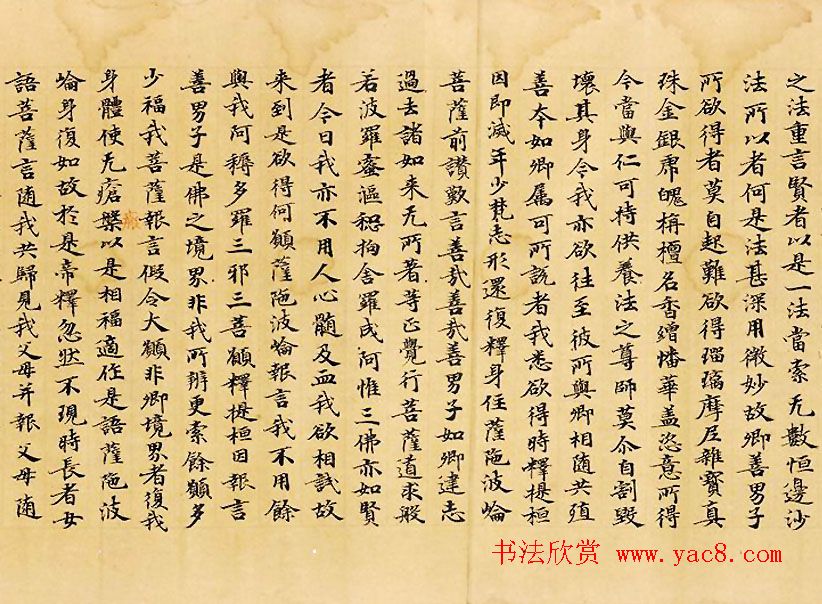 之法重言賢者以是一法當索无數恒邊沙
法所以者何是法甚深用微妙故卿善男子
所欲得者莫自起難欲得瑠璃摩尼雜寶真
珠金銀虎魄栴檀名香繒幡華盖恣意所得
今當與仁可持供養法之尊師莫尒自割毀
壞其身令我亦欲往至彼所與卿相随共殖
善夲如卿属可所説者我悉欲得時釋提桓
因即滅年少梵志形還復釋身住薩陁波崘
菩薩前讃歎言善㢤善㢤善男子如卿建志
過去諸如来无所著等正覺行菩薩道求般
若波羅蜜漚惒拘舍羅成阿惟三佛亦如賢
者今日我亦不用人心髓及血我欲相試故
来到是欲得何願薩陁波崘報言我不用餘
與我阿耨多羅三邪三善願釋提桓因報言
善男子是佛之境界非我所辨更索餘願多
少福我菩薩報言假令大願非卿境界者復我
身體使无瘡槃以是相福適住是語薩陁波
崘身復如故於是帝釋忽然不現時長者女
語菩薩言随我共歸見我父母并報父母随
书法欣赏 www.yac8.com